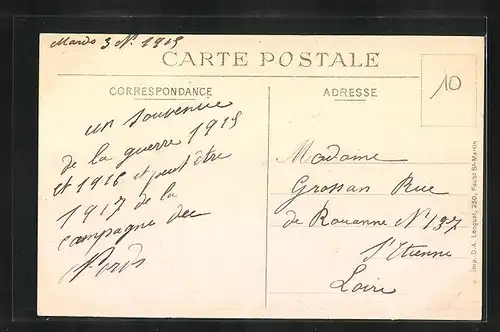 Mards 3 N. 1915
CARTE POSTALE
CORRESPONDANCE
ADRESSE
10
un souvenir
de la guerre 1915
et 1916 et peut être
1917 de la
campagne du
Nords
Madame
Grossan Rue
de Rouanne N° 137
St Etienne
Loire
Imp. D.A. Longuet, 250, Faubg St-Martin